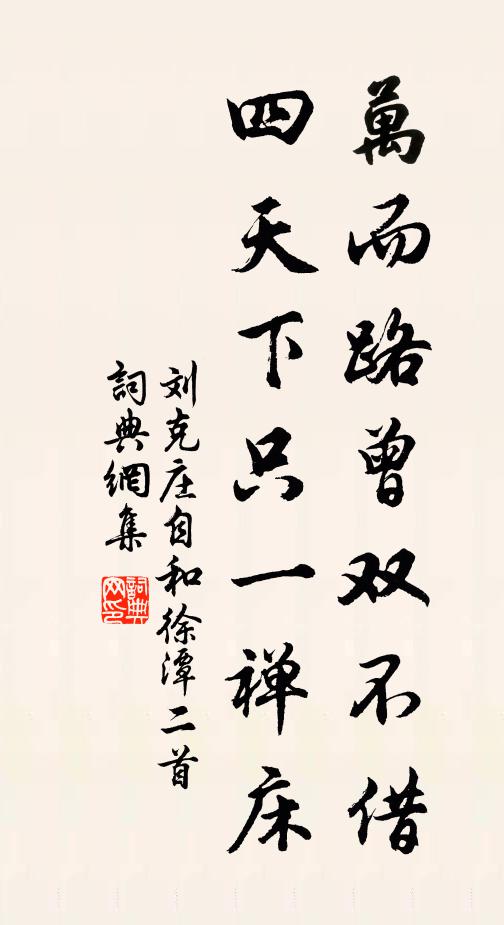 萬而路曾双不借
四天下只一禅床
刘克庄自和徐潭二首
詞典網集
詞典網印